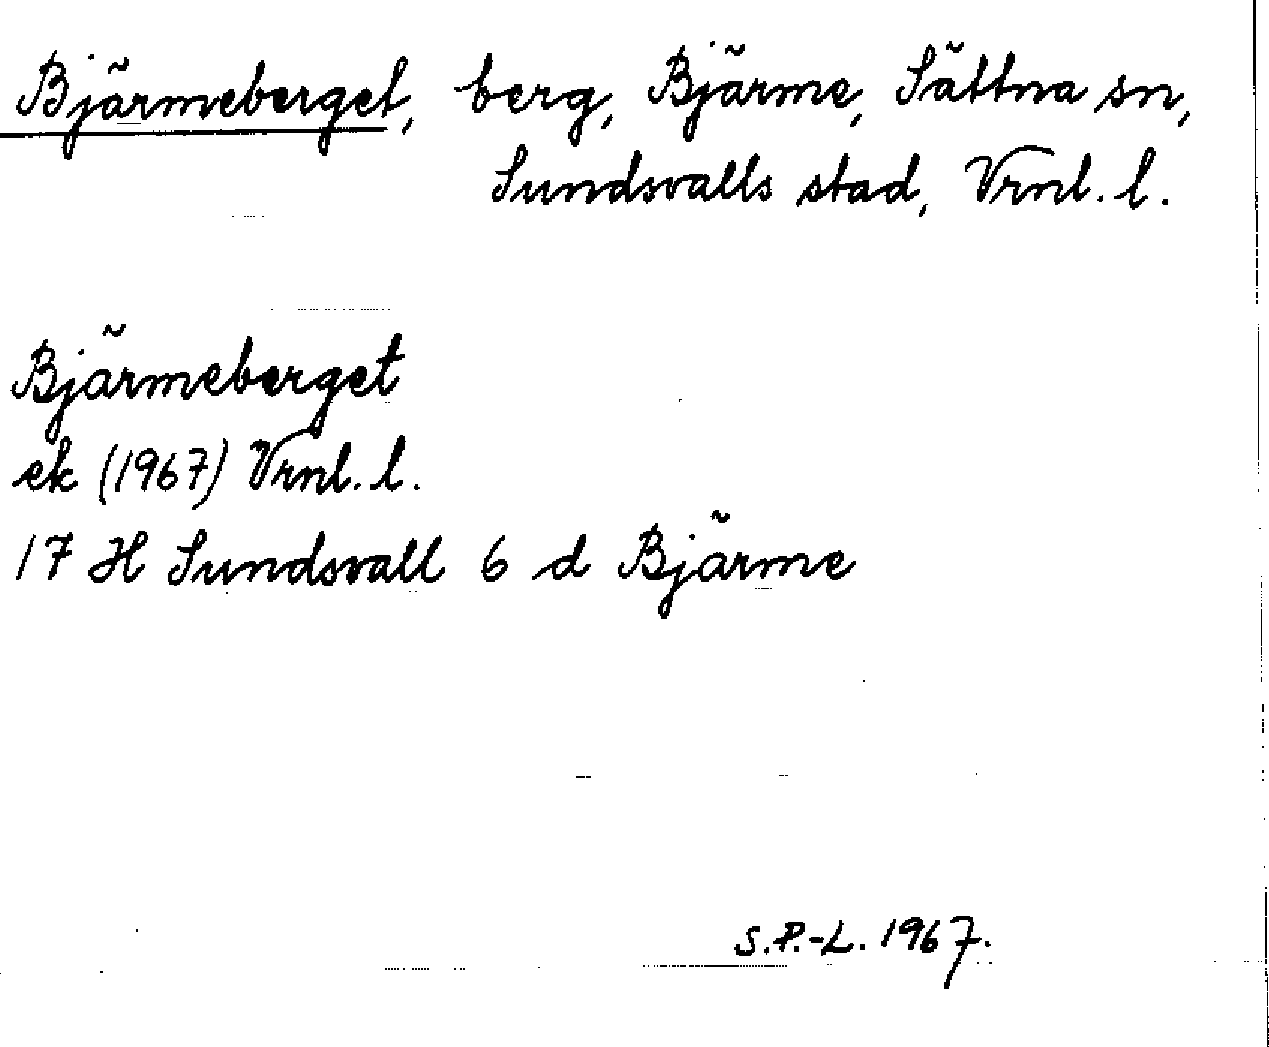 Bjärmeberget, berg, Bjärme, Sättna sn,
Sundsvalls stad, Vrnl. l.
Bjärmeberget
ek (1967) Vrnl. l.
17 H Sundsvall 6 d Bjärme
S.P.-L. 1967.